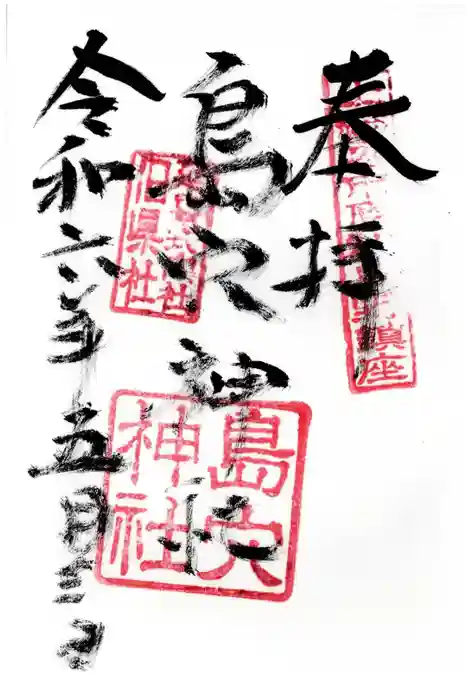 奉拝
島穴神社
令和六年五月三日
鎮座
式内社
旧県社
島穴
神社